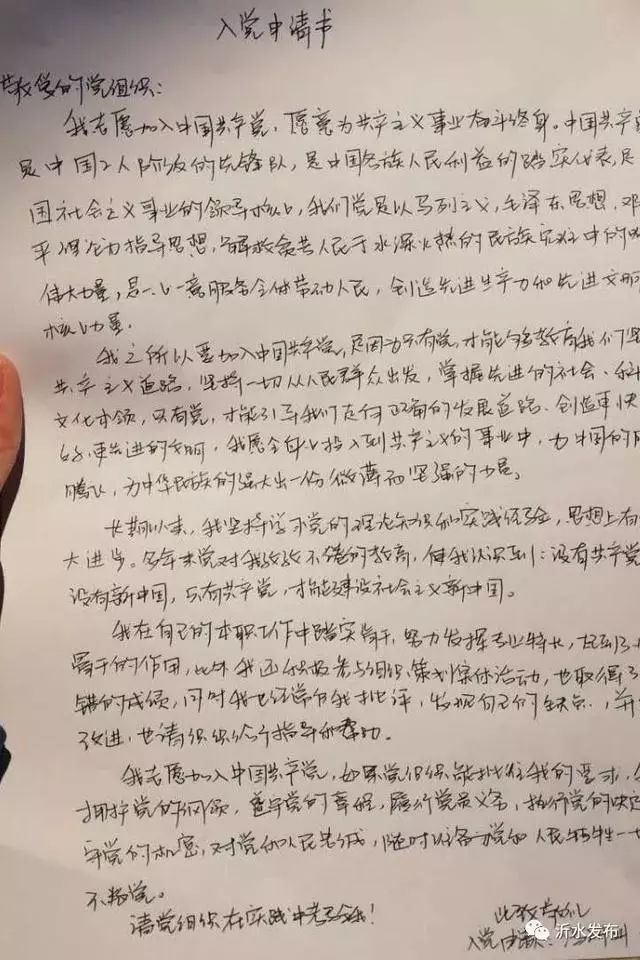 入党申请书
敬爱的党组织：
我志愿加入中国共产党，愿意为共产主义事业奋斗终身。中国共产
是中国工人阶级的先锋队，是中国各族人民利益的踏实代表，是
国社会主义事业的领导核心，我们党是以马列主义，毛泽东思想，邓
平理论为指导思想，解救贫苦人民于水深火热的民族灾难中的
伟大力量，是一心一意服务全体劳动人民，创造先进生产力和先进文明
核心力量。
我之所以要加入中国共产党，是因为只有党，才能够教育我们坚
共产主义道路，坚持一切从人民群众出发，掌握先进的社会、科
文化本领，只有党，才能引导我们走向正确的发展道路、创造更快
好、更先进的文明，我愿全身心投入到共产主义的事业中，为中国的
腾飞，为中华民族的强大出一份微薄而坚强的力量。
长期以来，我坚持学习党的理论知识和实践经验，思想上有
大进步。多年来党对我孜孜不倦的教育，使我认识到：没有共产党
没有新中国，只有共产党，才能建设社会主义新中国。
我在自己的本职工作中踏实肯干，努力发挥专业特长，起到了
骨干的作用，此外我还积极参与组织、策划集体活动，也取得了
错的成绩，同时我也经常自我批评，发现自己的缺点，并
改进，也请组织给予指导和帮助。
我志愿加入中国共产党，如果党组织能批准我的要求，
拥护党的纲领，遵守党的章程，履行党员义务，执行党的决定
守党的机密，对党和人民忠诚，随时准备为党和人民牺牲一
不叛党。
请党组织在实践中考验我！
此致敬礼
入党申请
沂水发布